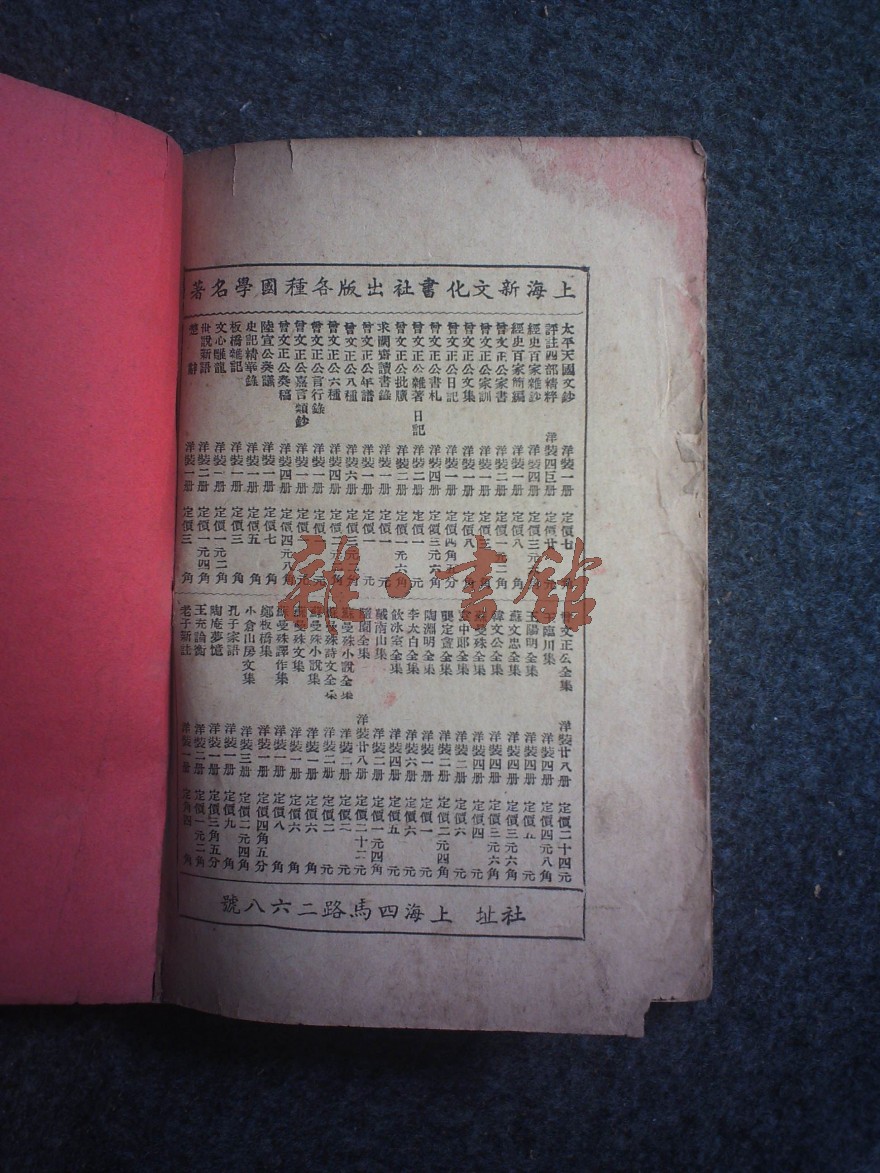 上海新文化書社出版各種國學名著
太平天國文鈔 洋裝一册 定價七角
評註四部精粹 洋裝四巨册 定價廿元
經史百家雜鈔 洋裝四册 定價三元角
經史百家簡編 洋裝一册 定價八角
曾文正公家書 洋裝二册 定價一角
曾文正公家訓 洋裝一册 定價三角
曾文正公文集 洋裝一册 定價八角
曾文正公日記 洋裝一册 定價四角五分
曾文正公書札 洋裝四册 定價三元六角
曾文正公雜著日記 洋裝二册 定價一元
曾文正公批牘 洋裝二册 定價一元六角
求闕齋讀書錄 洋裝一册 定價一元
曾文正公年譜 洋裝一册 定價一元
曾文正公八種 洋裝六册 定價三元角
曾文正公六種 洋裝四册 定價
曾文正公言行錄 洋裝一册 定價
曾文正公嘉言類鈔 洋裝一册 定價元
曾文正公奏稿 洋裝四册 定價四元八角
陸宣公奏議 洋裝一册 定價七角
史記精華錄 洋裝一册 定價五角
板橋雜記 洋裝一册 定價三角
文心雕龍 洋裝一册 定價一元二角
世說新語 洋裝二册 定價一元四角
楚辭 洋裝一册 定價三角
曾文正公全集 洋裝廿八册 定價二十四元
王臨川集 洋裝四册 定價四元八角
王陽明全集 洋裝四册 定價五元
蘇文忠全集 洋裝四册 定價三元六角
韓文公全集 洋裝四册 定價三元六角
蘇曼殊全集 洋裝四册 定價四元
袁中郎全集 洋裝二册 定價六元
龔定盦全集 洋裝二册 定價二元四角
陶淵明全集 洋裝一册 定價一元
李太白全集 洋裝六册 定價六元
飲冰室全集 洋裝四册 定價五元
戴南山集 洋裝二册 定價一元四角
隨園全集 洋裝廿八册 定價二十二元
蘇曼殊小說全集 洋裝二册 定價二元
蘇曼殊詩文全集 洋裝二册 定價二元
蘇曼殊小說集 洋裝一册 定價六角
蘇曼殊文集 洋裝一册 定價六角
蘇曼殊譯作集 洋裝一册 定價八角
鄭板橋集 洋裝一册 定價四角五分
小倉山房文集 洋裝三册 定價二元四角
孔子家語 洋裝一册 定價九角
陶庵夢憶 洋裝一册 定價三角五分
王充論衡 洋裝二册 定價一元二角
老子新註 洋裝一册 定角四角
社址 上海四馬路二六八號
雜·書館